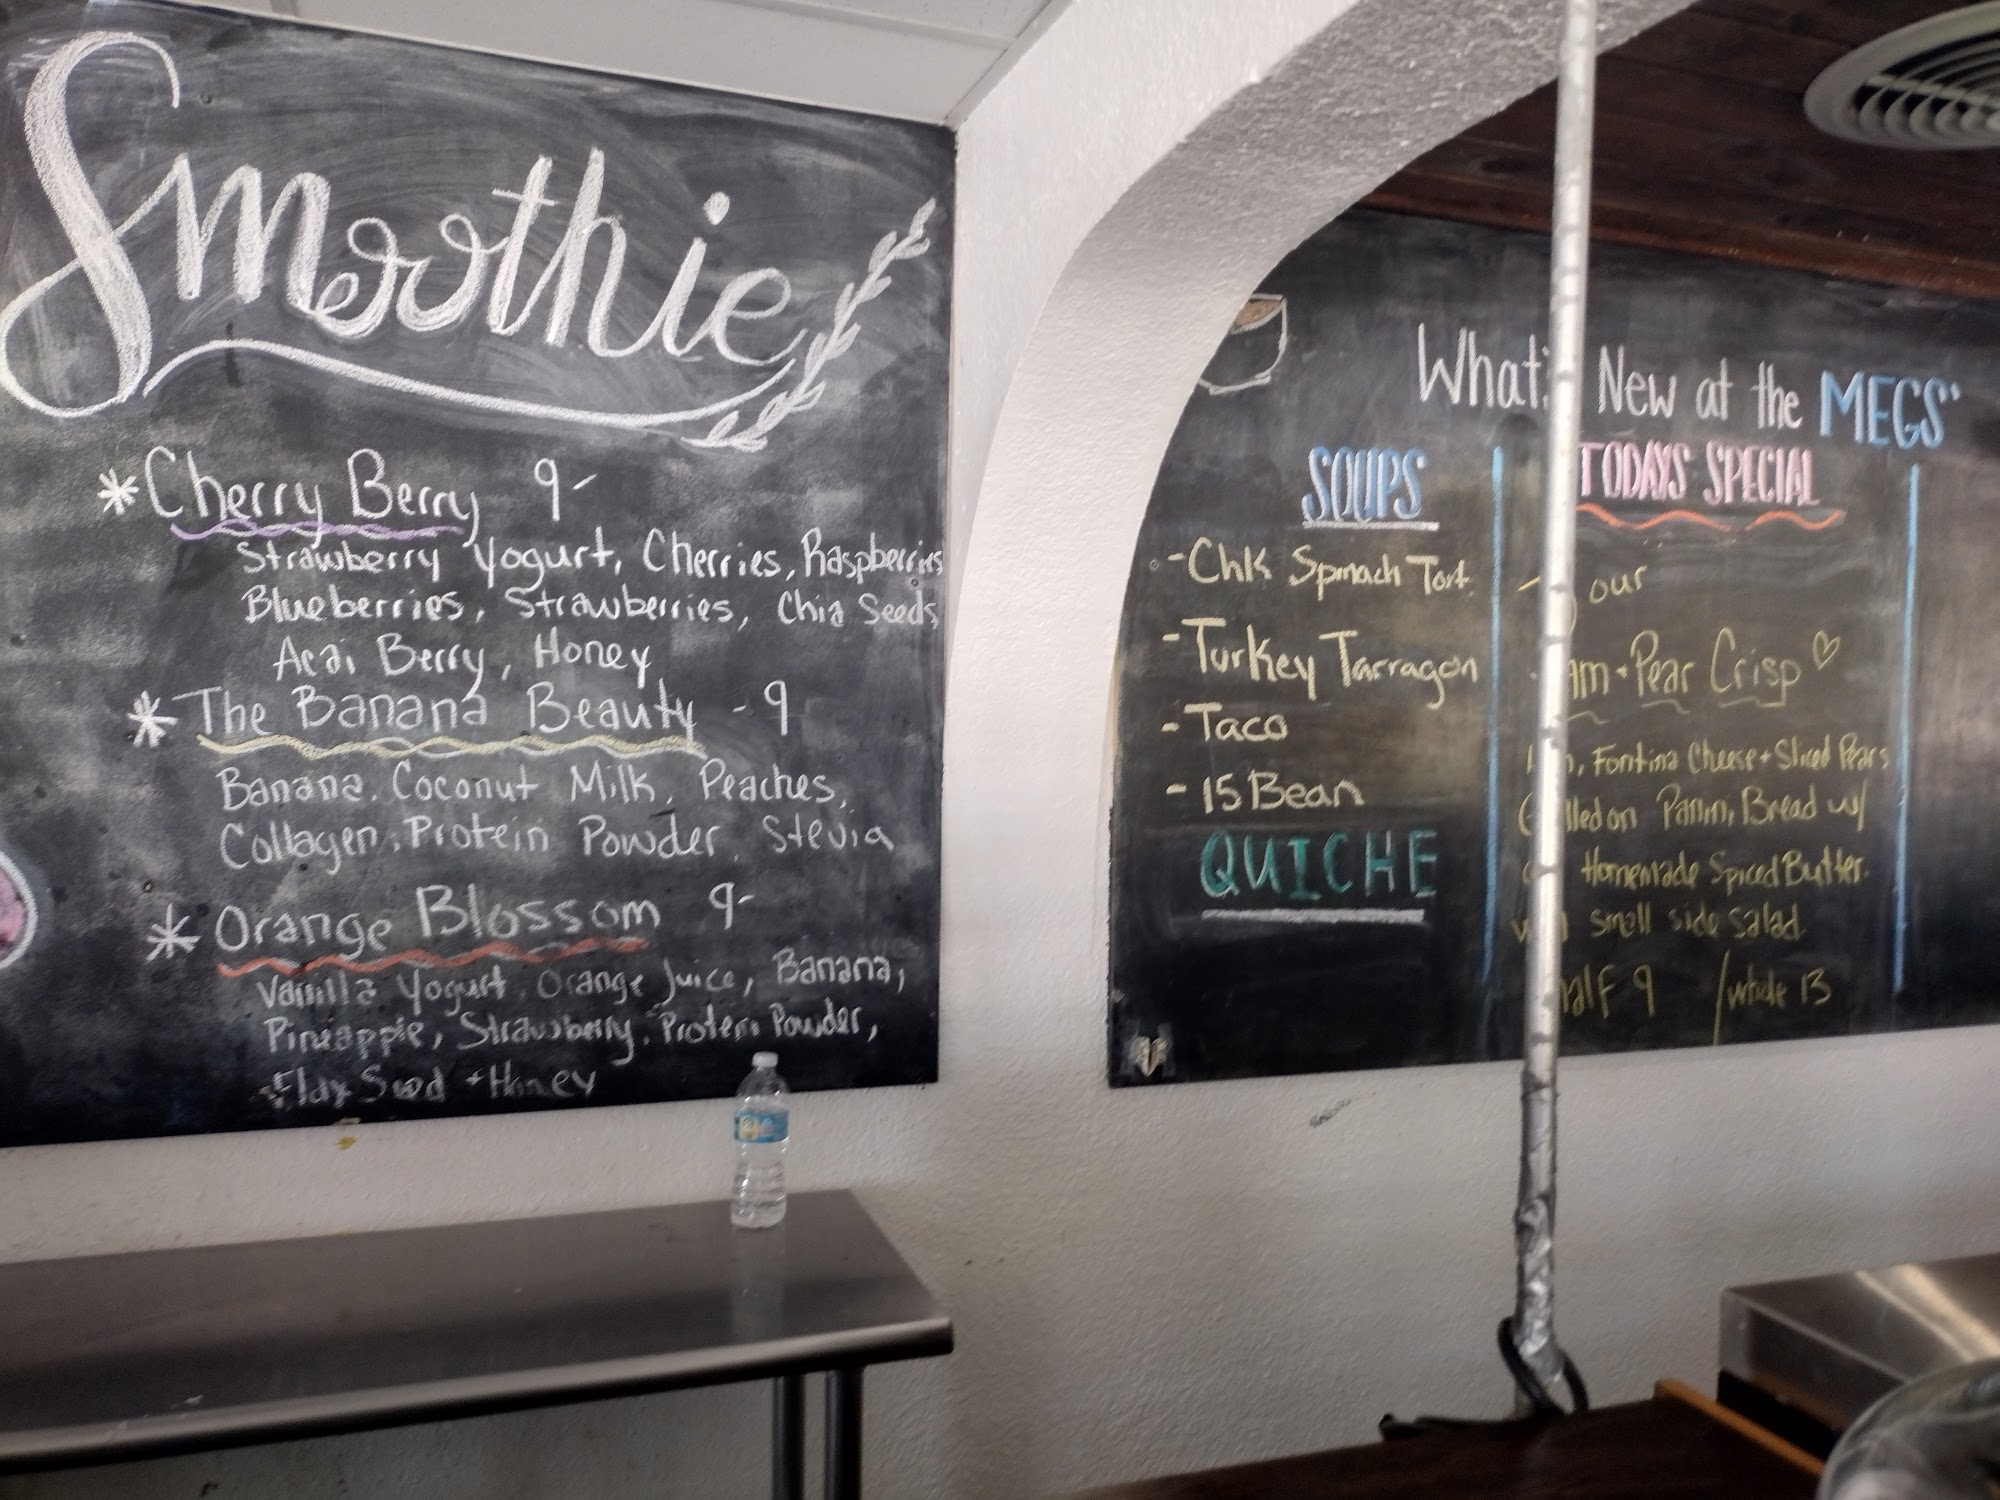 Smoothie
*Cherry Berry 9-
Strawberry Yogurt, Cherries, Raspberries
Blueberries, Strawberries, Chia Seeds
Acai Berry, Honey
*The Banana Beauty - 9
Banana, Coconut Milk, Peaches,
Collagen, Protein Powder, Stevia
*Orange Blossom 9-
Vanilla Yogurt, Orange Juice, Banana,
Pineapple, Strawberry, Protein Powder,
Flax Seed + Honey
What's New at the MEGS"
SOUPS
- Chk Spinach Tort.
- Turkey Tarragon
- Taco
- 15 Bean
QUICHE
TODAYS SPECIAL
our
Pear Crisp ♡
Fontina Cheese + Sliced Pears
on Panini Bread w/
Homemade Spiced Butter.
small side salad
half 9 / whole 13